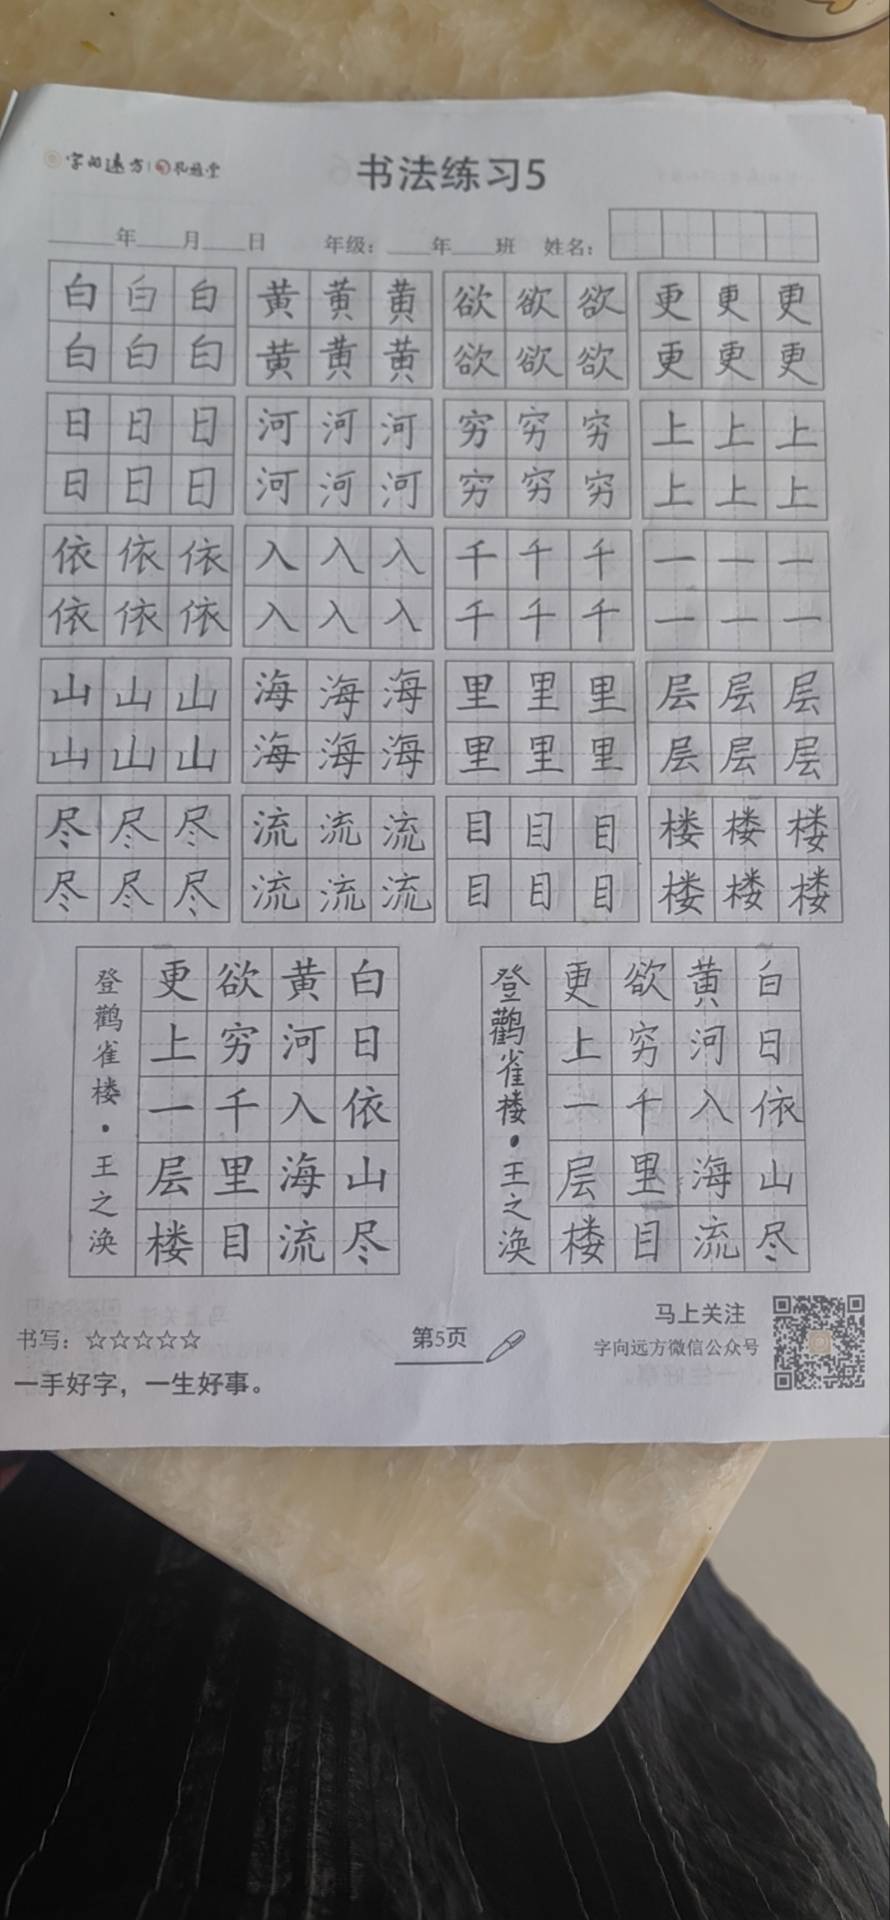 字向遠方 | 孔庙堂
书法练习5
____年____月____日 年级：____年____班 姓名：
白白白 黄黄黄 欲欲欲 更更更
白白白 黄黄黄 欲欲欲 更更更
日日日 河河河 穷穷穷 上上上
日日日 河河河 穷穷穷 上上上
依依依 入入入 千千千 一一一
依依依 入入入 千千千 一一一
山山山 海海海 里里里 层层层
山山山 海海海 里里里 层层层
尽尽尽 流流流 目目目 楼楼楼
尽尽尽 流流流 目目目 楼楼楼
白日依山尽
黄河入海流
欲穷千里目
更上一层楼
登鹳雀楼·王之涣
白日依山尽
黄河入海流
欲穷千里目
更上一层楼
登鹳雀楼·王之涣
书写：☆☆☆☆☆
一手好字，一生好事。
第5页
马上关注
字向远方微信公众号